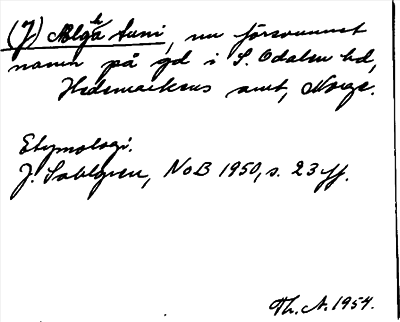 (J) Alga tuni, nu försvunnet
namn på gd i S. Odalen hd,
Hedemarkens amt, Norge.
Etymologi.
J. Sahlgren, NoB 1950, s. 23 ff.
Th. A. 1954.